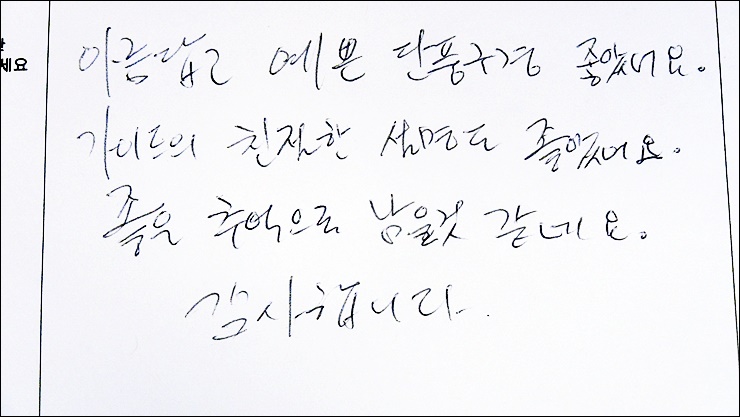 세요
아름답고 예쁜 단풍구경 좋았네요.
가이드의 친절한 설명도 좋았네요.
좋은 추억으로 남을것 같네요.
감사합니다.